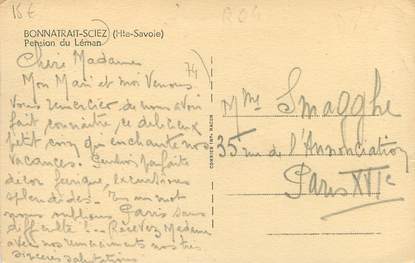 15€
BONNATRAIT-SCIEZ (Hte-Savoie)
Pension du Léman
74
Chère Madame
Mon Mari et moi Venons
Vous remercier de nous avoir
fait connaître, ce délicieux
petit coin qui enchante nos
Vacances. Pension parfaite
décor féerique, excursions
splendides. En un mot
nous oublions Paris sans
difficulté ! .. Recevez Madame
avec nos remerciements nos très
sincères salutations
Mme Smagghe
35 rue de l'Annonciation
Paris XVIe